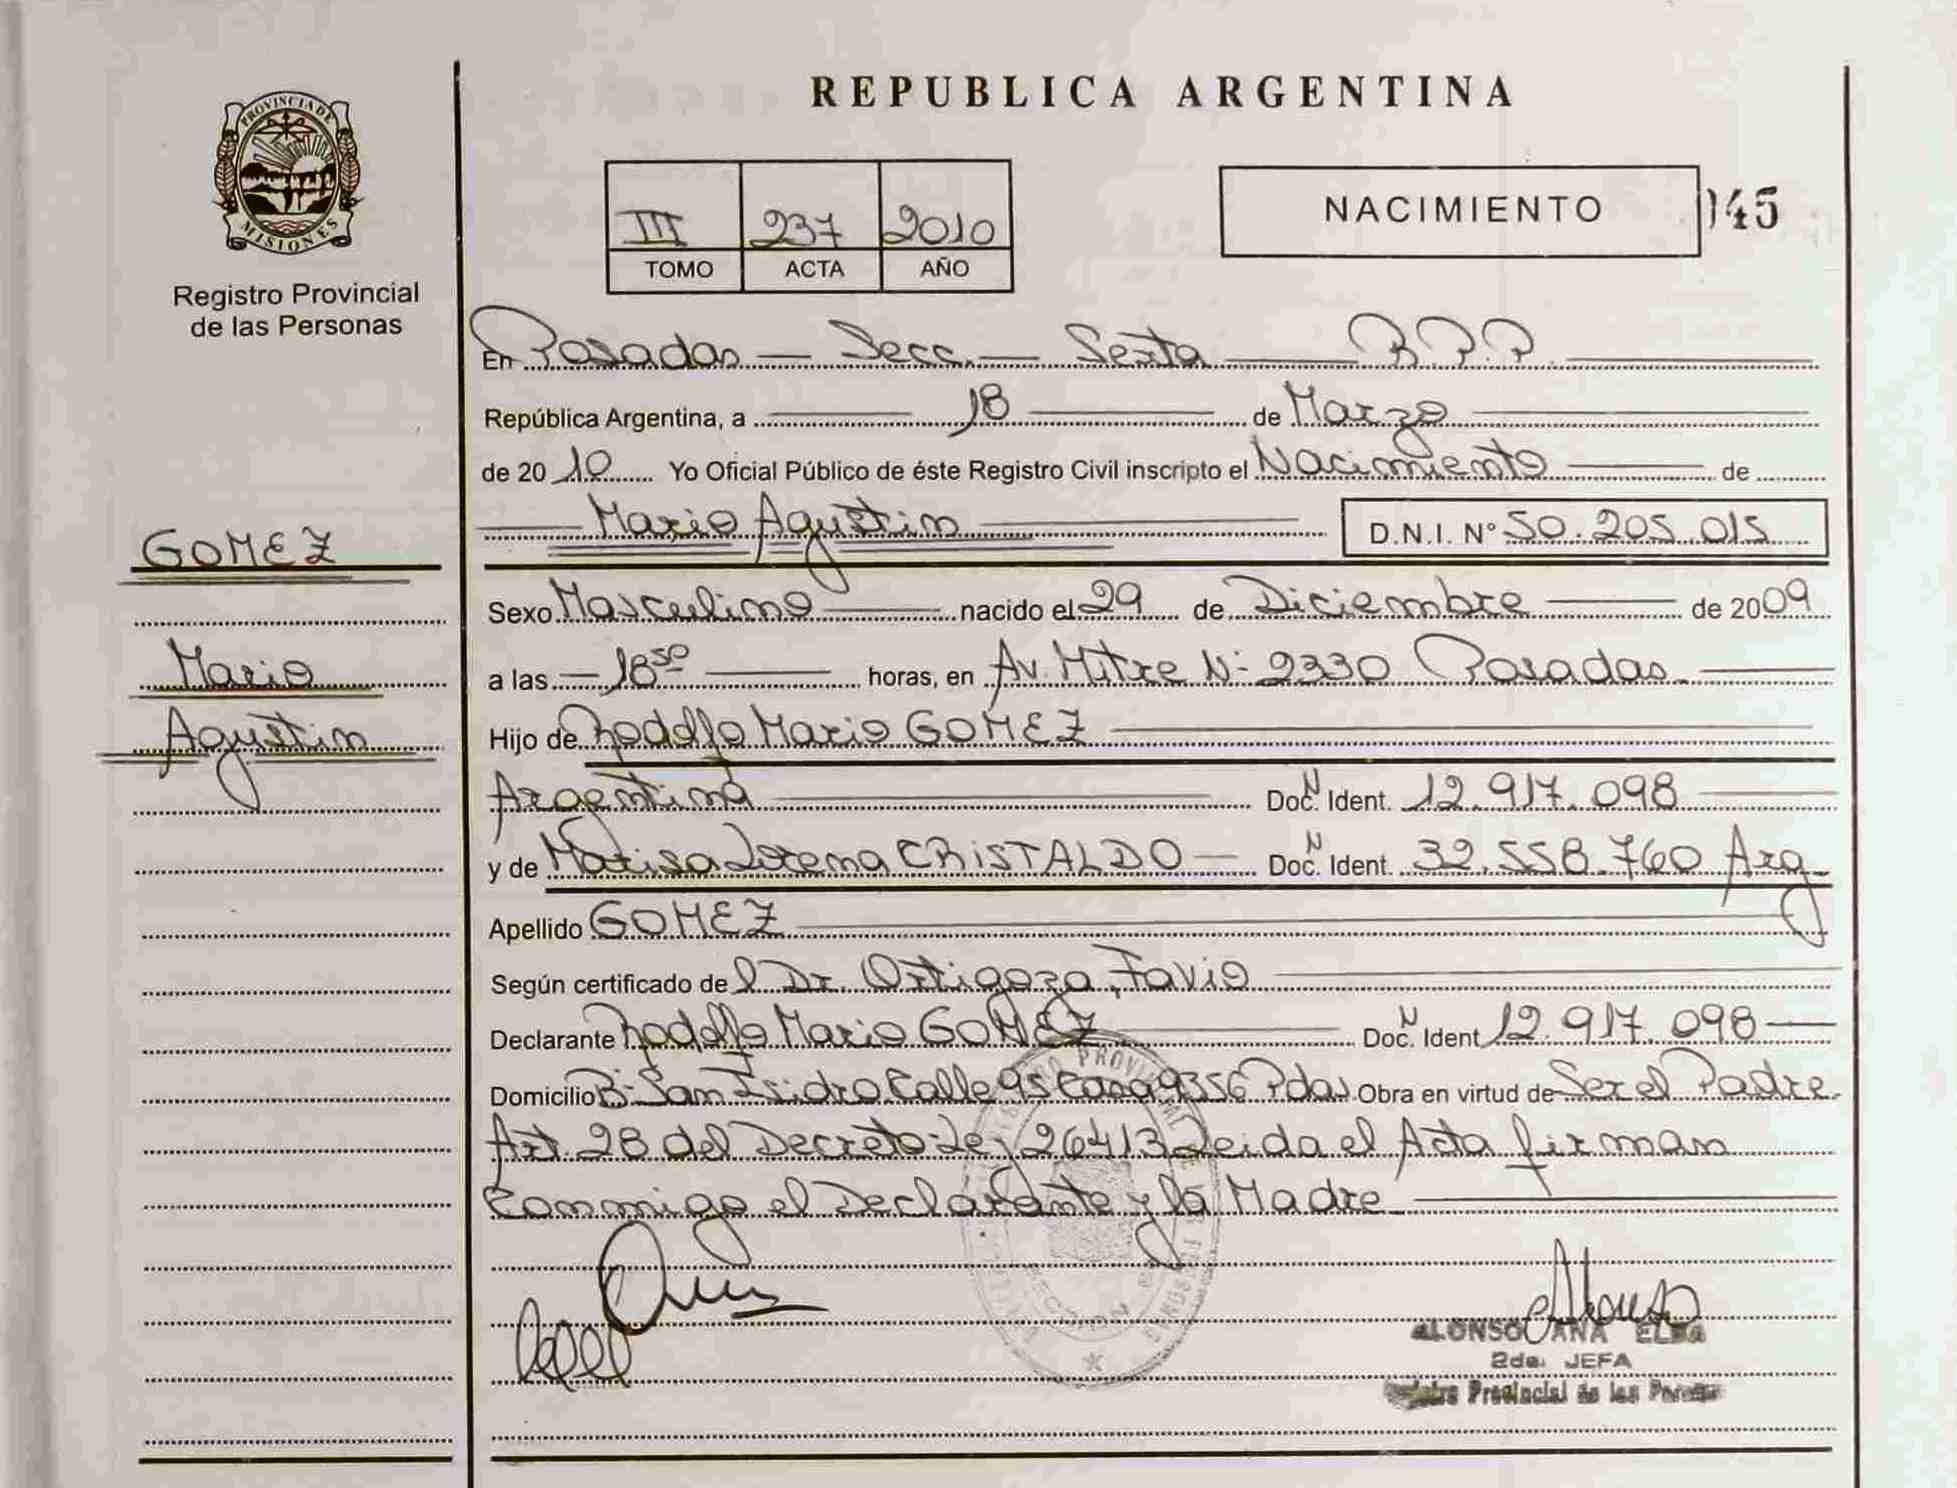 REPUBLICA ARGENTINA
PROVINCIA DE
MISIONES
Registro Provincial
de las Personas
III 237 2010
TOMO ACTA AÑO
NACIMIENTO
145
En Posadas Secc. Sexta B.P.P.
República Argentina, a 18 de Marzo
de 2010 Yo Oficial Público de éste Registro Civil inscripto el Nacimiento de
Mario Agustin D.N.I. N° 50.205.015
GOMEZ
Mario
Agustin
Sexo Masculino nacido el 29 de Diciembre de 2009
a las 18 50 horas, en Av. Mitre N° 2330 Posadas
Hijo de Rodolfo Mario GOMEZ
Argentina Doc. N Ident. 12.917.098
y de Marisa Lorena CRISTALDO Doc. N Ident. 32.558.760 Arg
Apellido GOMEZ
Según certificado del Dr. Ortigoza, Favio
Declarante Rodolfo Mario GOMEZ Doc. N Ident 12.917.098
Domicilio B° San Isidro Calle 95 Casa 9356 Pdas Obra en virtud de Ser el Padre
Art. 28 del Decreto Ley 26413 Leida el Acta firman
Conmigo el Declarante y la Madre
ALONSO ANA ELBA
2da. JEFA
Registro Provincial de las Personas